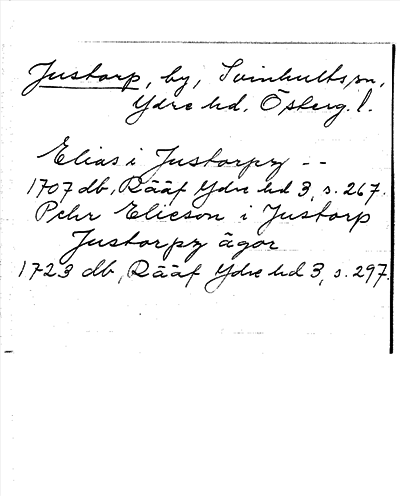 Justorp, by, Svinhults sn,
Ydre hd. Österg. l.
Elias i Justorpz --
1707 db, Rääf Ydre hd 3, s. 267.
Pehr Elicson i Justorp
Justorpz ägor
1723 db, Rääf Ydre hd 3, s. 297.